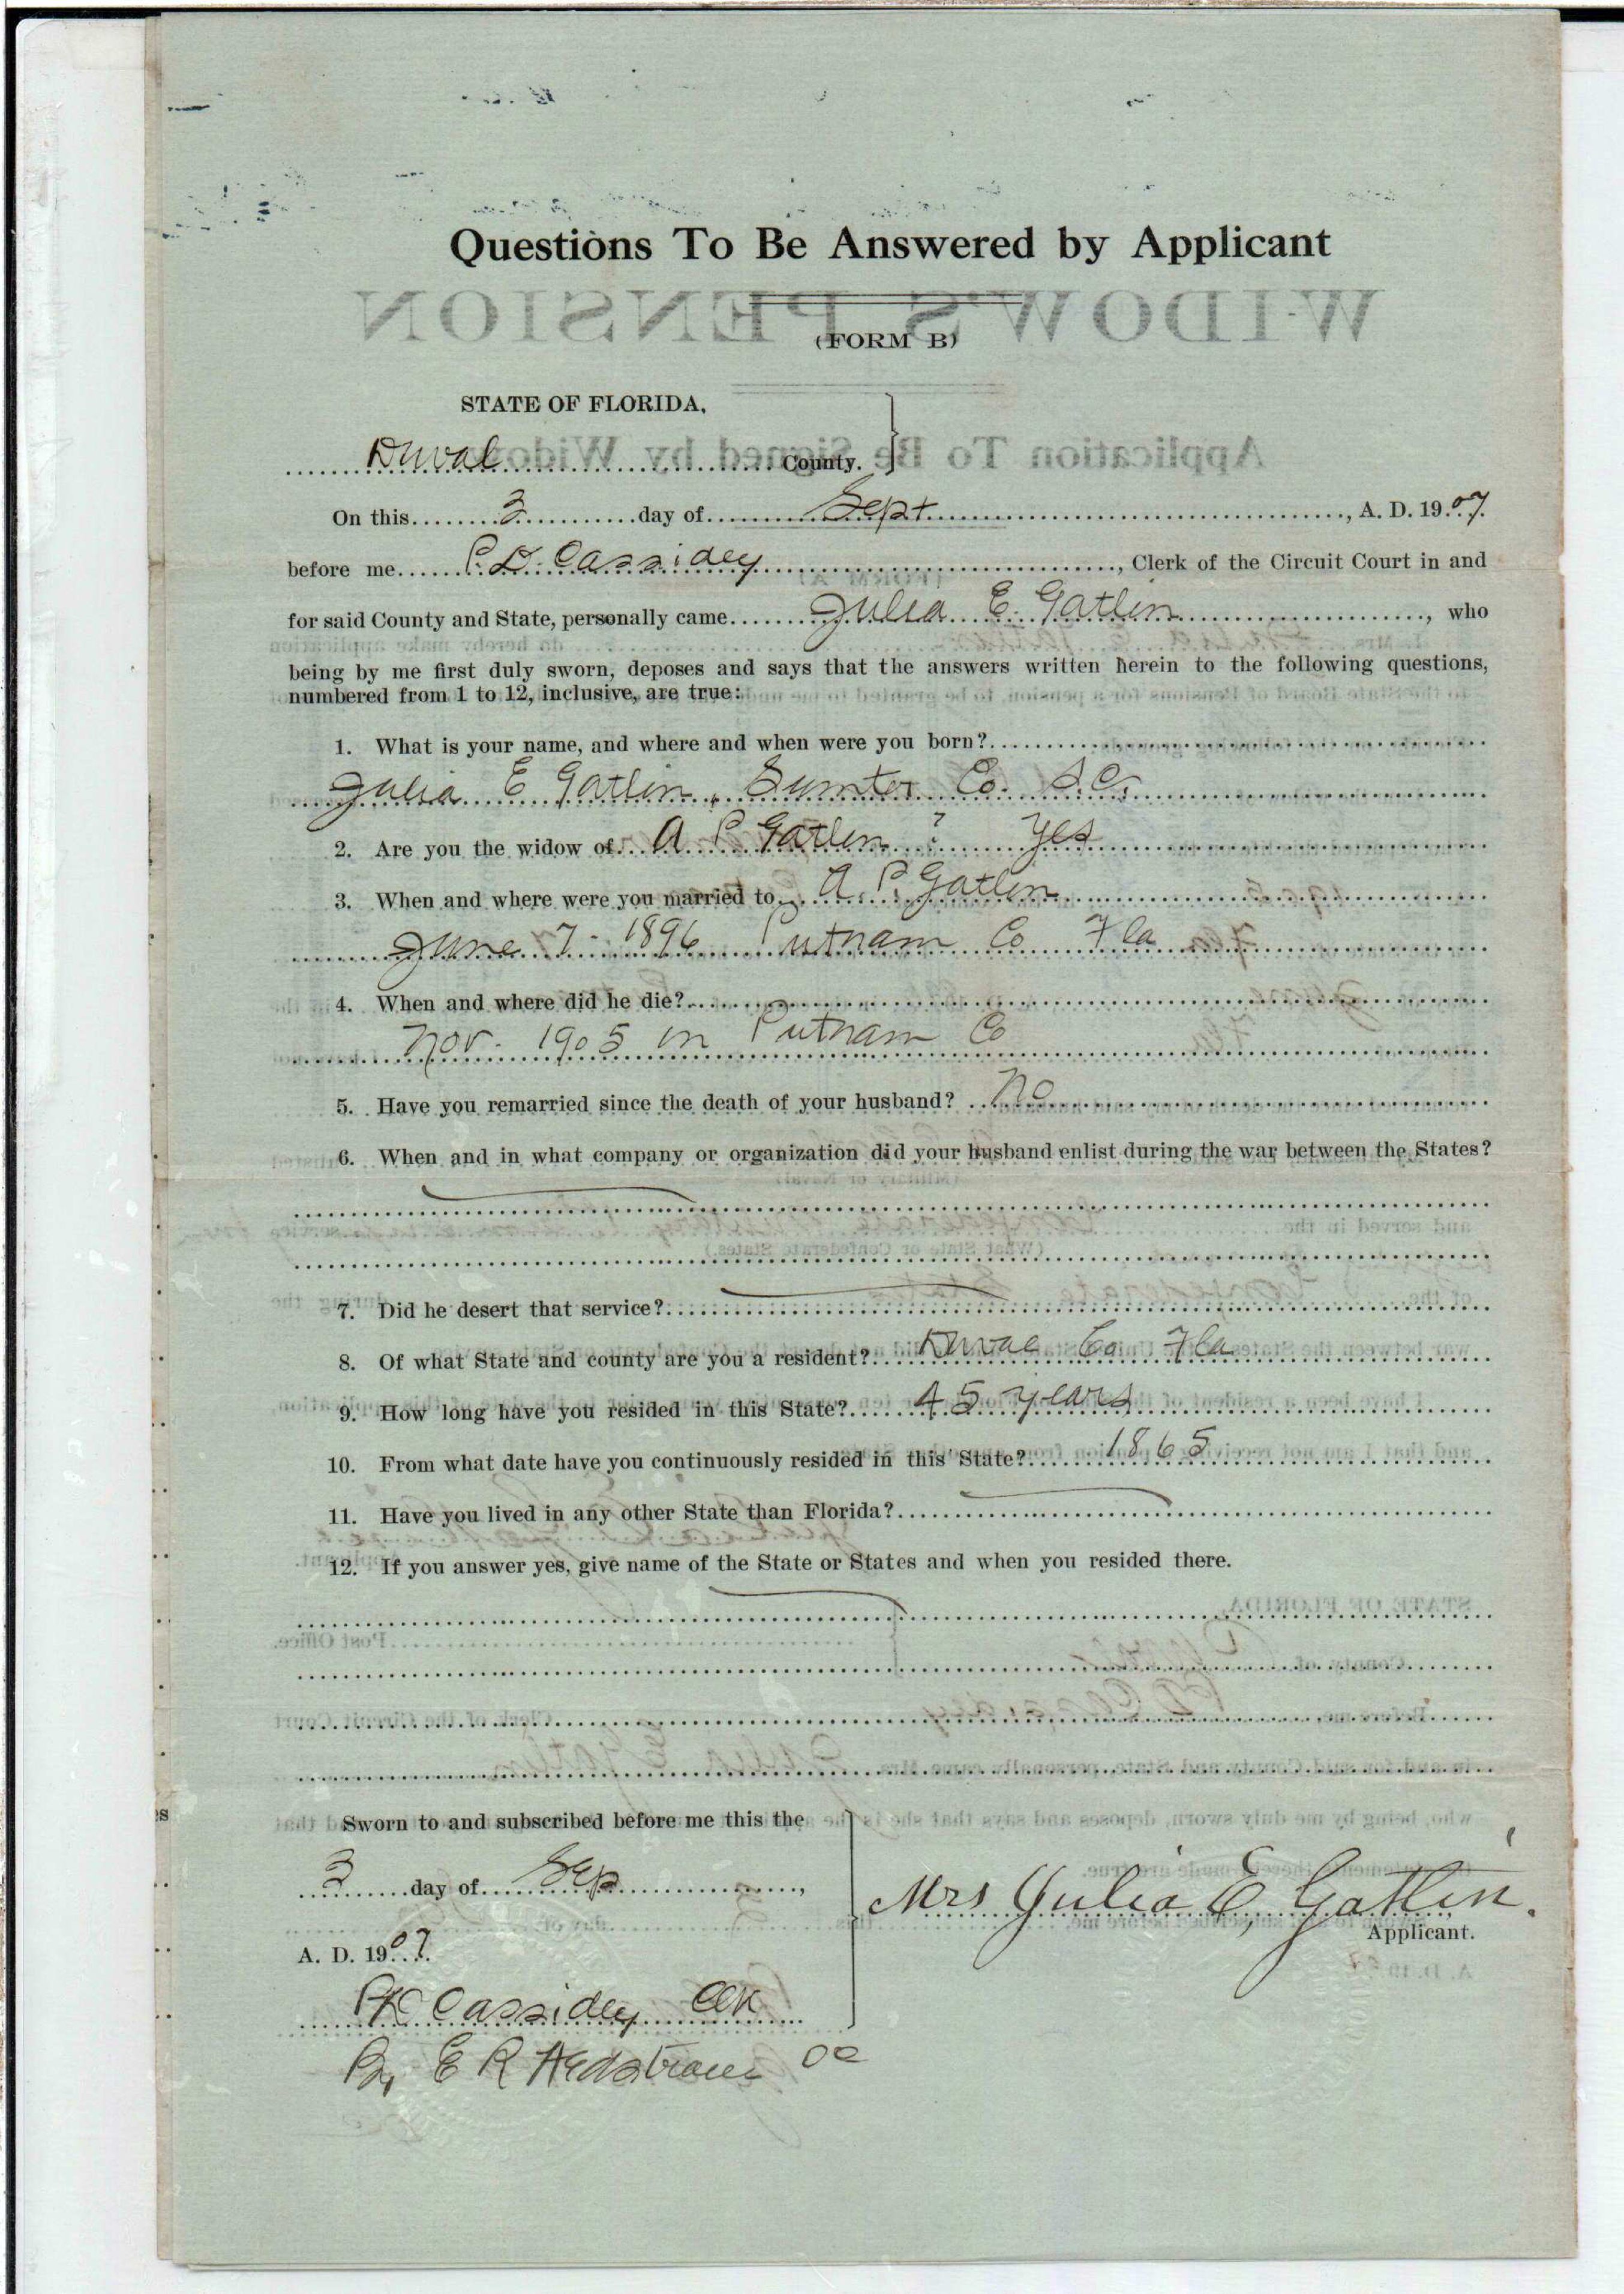 Questions To Be Answered by Applicant
(FORM B)
STATE OF FLORIDA,
Duval County.
On this 3 day of Sept, A. D. 1907
before me P. D. Cassidey, Clerk of the Circuit Court in and
for said County and State, personally came Julia E. Gatlin, who
being by me first duly sworn, deposes and says that the answers written herein to the following questions,
numbered from 1 to 12, inclusive, are true:
1. What is your name, and where and when were you born?
Julia E Gatlin, Sumter Co. S.C.
2. Are you the widow of A P Gatlin ? Yes
3. When and where were you married to A. P. Gatlin
June 7- 1896 Putnam Co Fla
4. When and where did he die?
Nov. 1905 in Putnam Co
5. Have you remarried since the death of your husband? No
6. When and in what company or organization did your husband enlist during the war between the States?
7. Did he desert that service?
8. Of what State and county are you a resident? Duval Co Fla
9. How long have you resided in this State? 45 years
10. From what date have you continuously resided in this State? 1865
11. Have you lived in any other State than Florida?
12. If you answer yes, give name of the State or States and when you resided there.
Sworn to and subscribed before me this the
3 day of Sep,
Mrs Julia E, Gatlin.
Applicant.
A. D. 1907.
P D Cassidey Clk
By E R Hedstrom DC